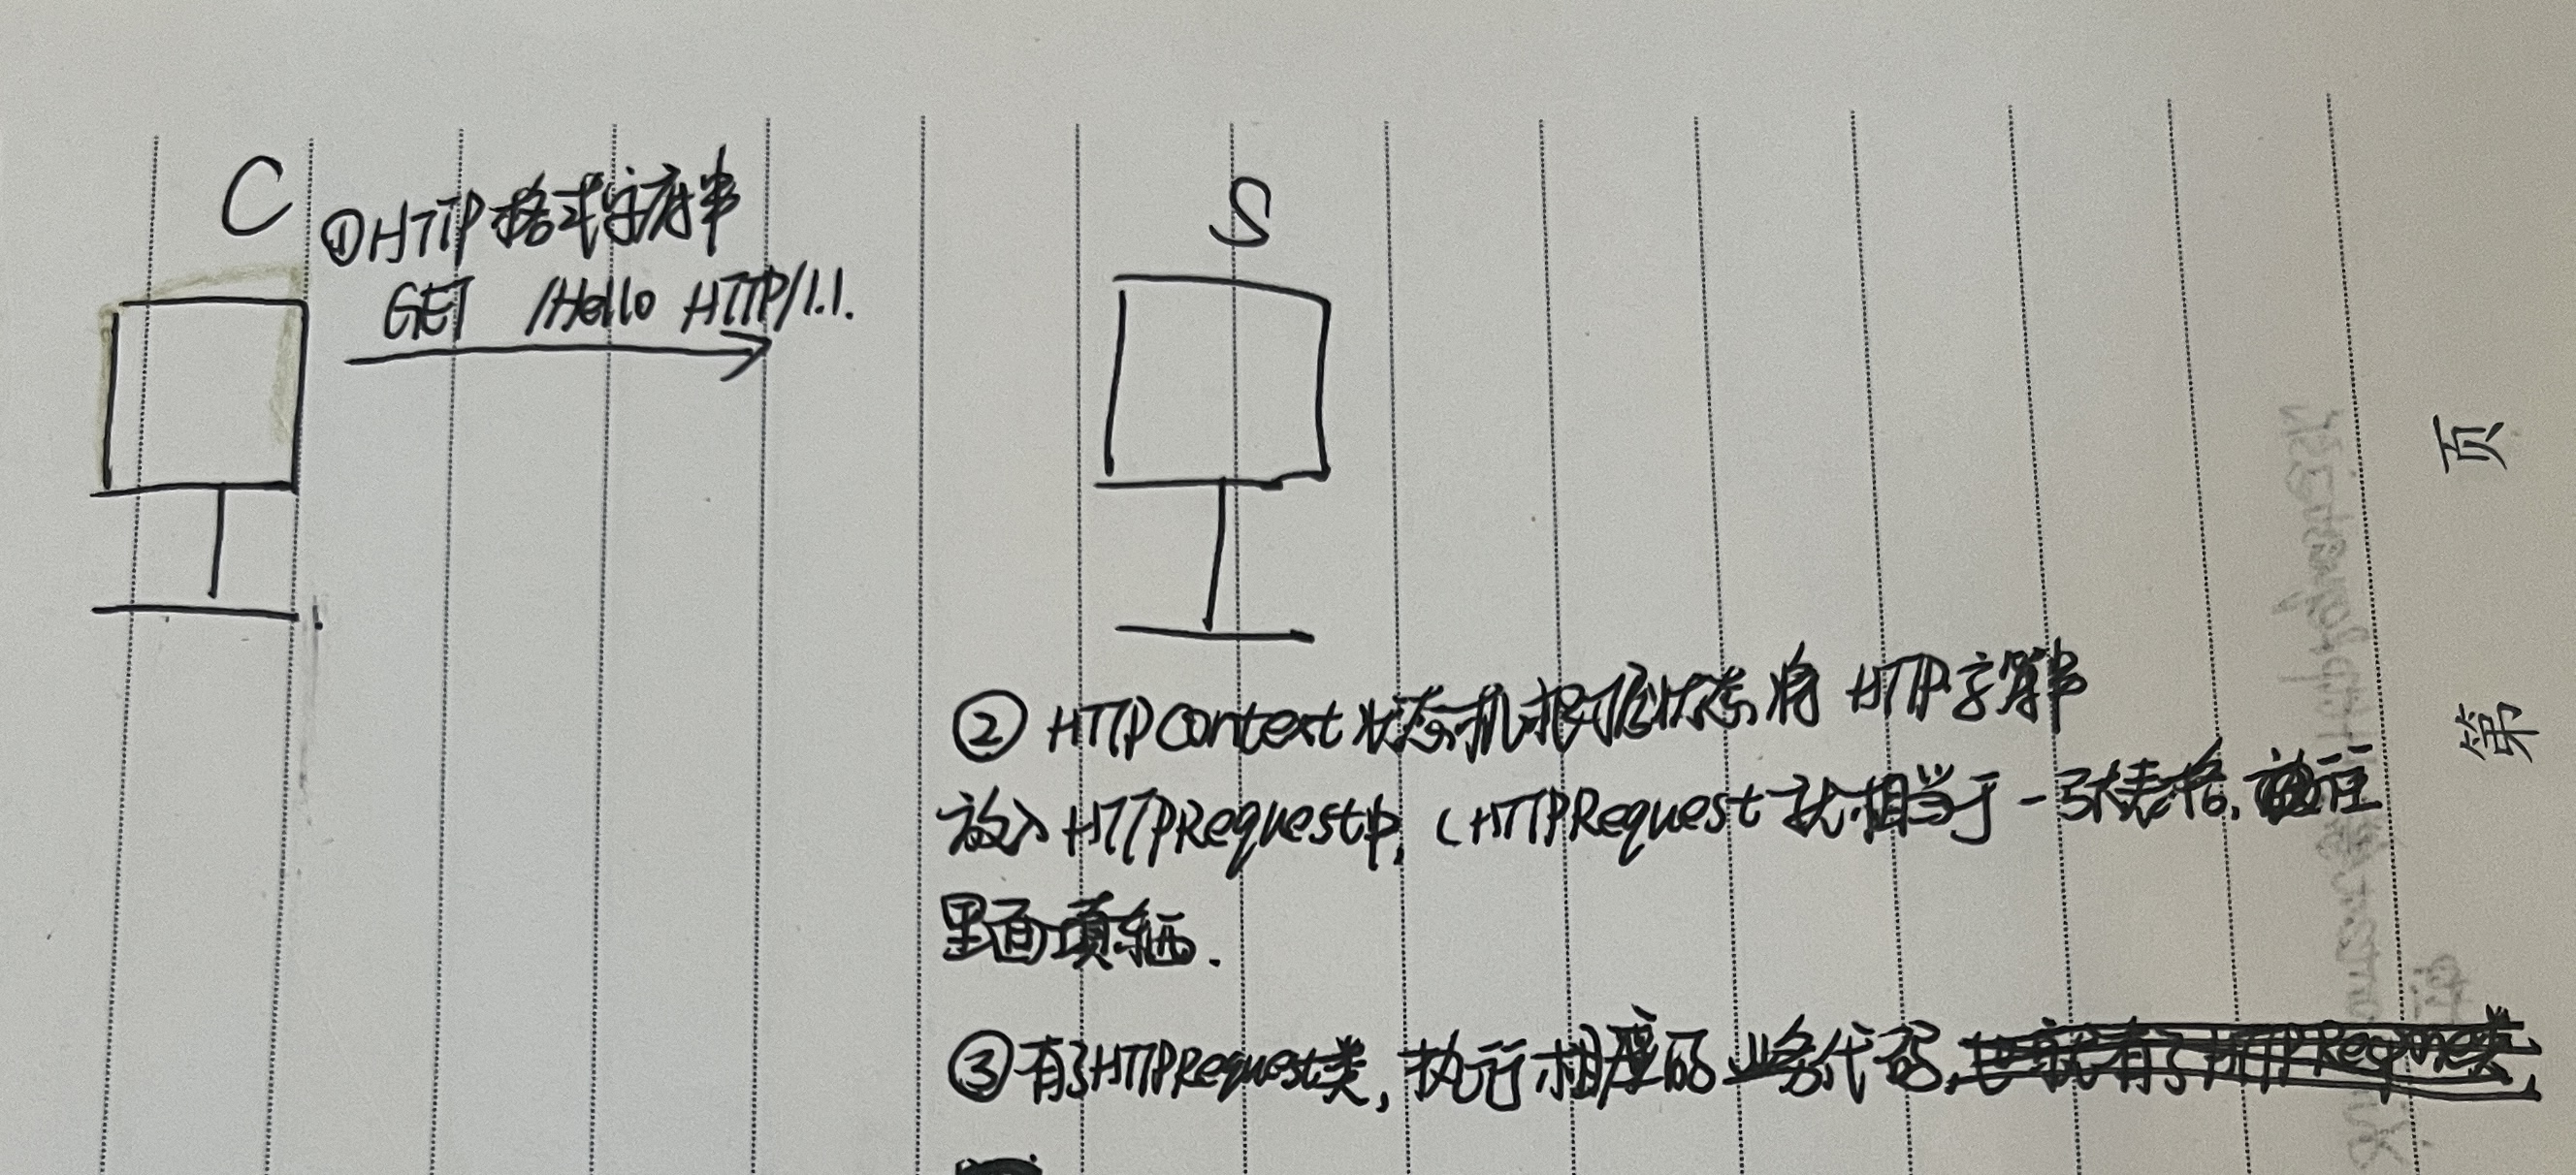 C
①HTTP格式字符串
GET /Hello HTTP/1.1.
S
②HTTPContext状态机根据状态将HTTP字符串
放入HTTPRequest中,(HTTPRequest就相当于一张表格,在
里面填东西.
③有了HTTPRequest类,执行相应的业务代码,
页
第